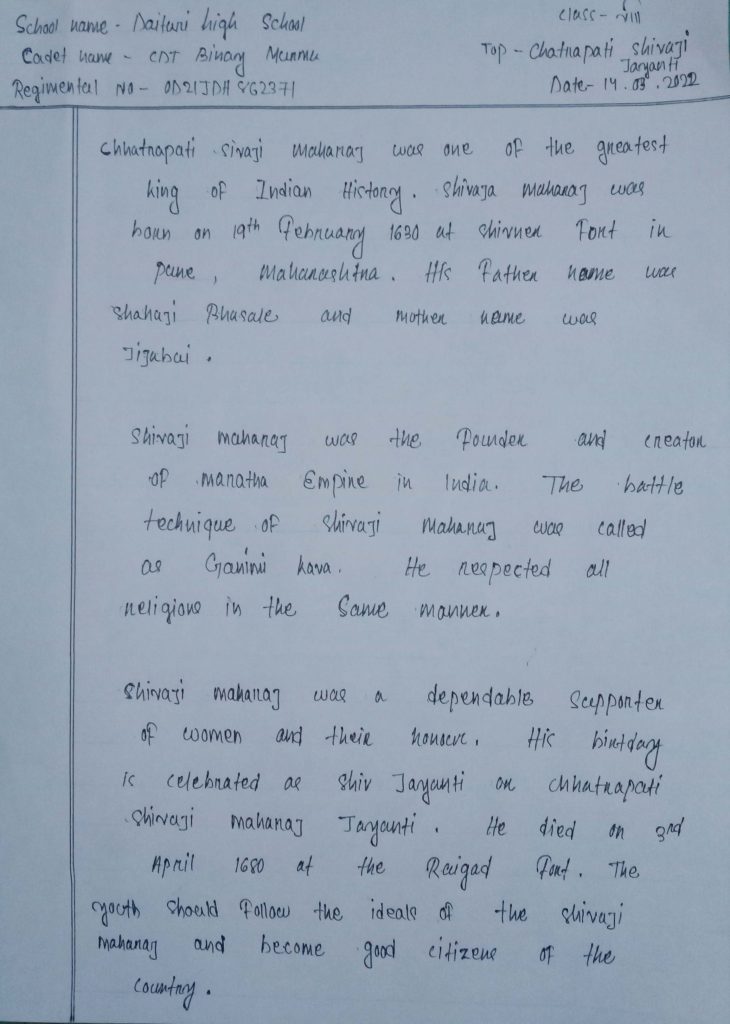 School name - Daitari high School
Class - viii
Cadet name - CDT Binary Murmu
Top - Chatrapati Shivaji
Jaryanti
Regimental No - OD21JDH862371
Date - 14.03.2022
Chhatrapati Sivaji Maharaj was one of the greatest
king of Indian History. Shivaja Maharaj was
born on 19th February 1630 at shivner Fort in
pune, Maharashtra. His Father name was
Shahaji Bhasale and mother name was
Jijabai.
Shivaji maharaj was the founder and creator
of maratha Empire in India. The battle
technique of Shivaji Maharaj was called
as Ganimi kava. He respected all
religions in the Same manner.
Shivaji maharaj was a dependable Supporter
of women and their honour. His birtday
is celebrated as Shiv Jaryanti or Chhatrapati
Shivaji maharaj Jaryanti. He died on 3rd
April 1680 at the Raigad Fort. The
youth Should Follow the ideals of the Shivaji
Maharaj and become good citizens of the
Country.